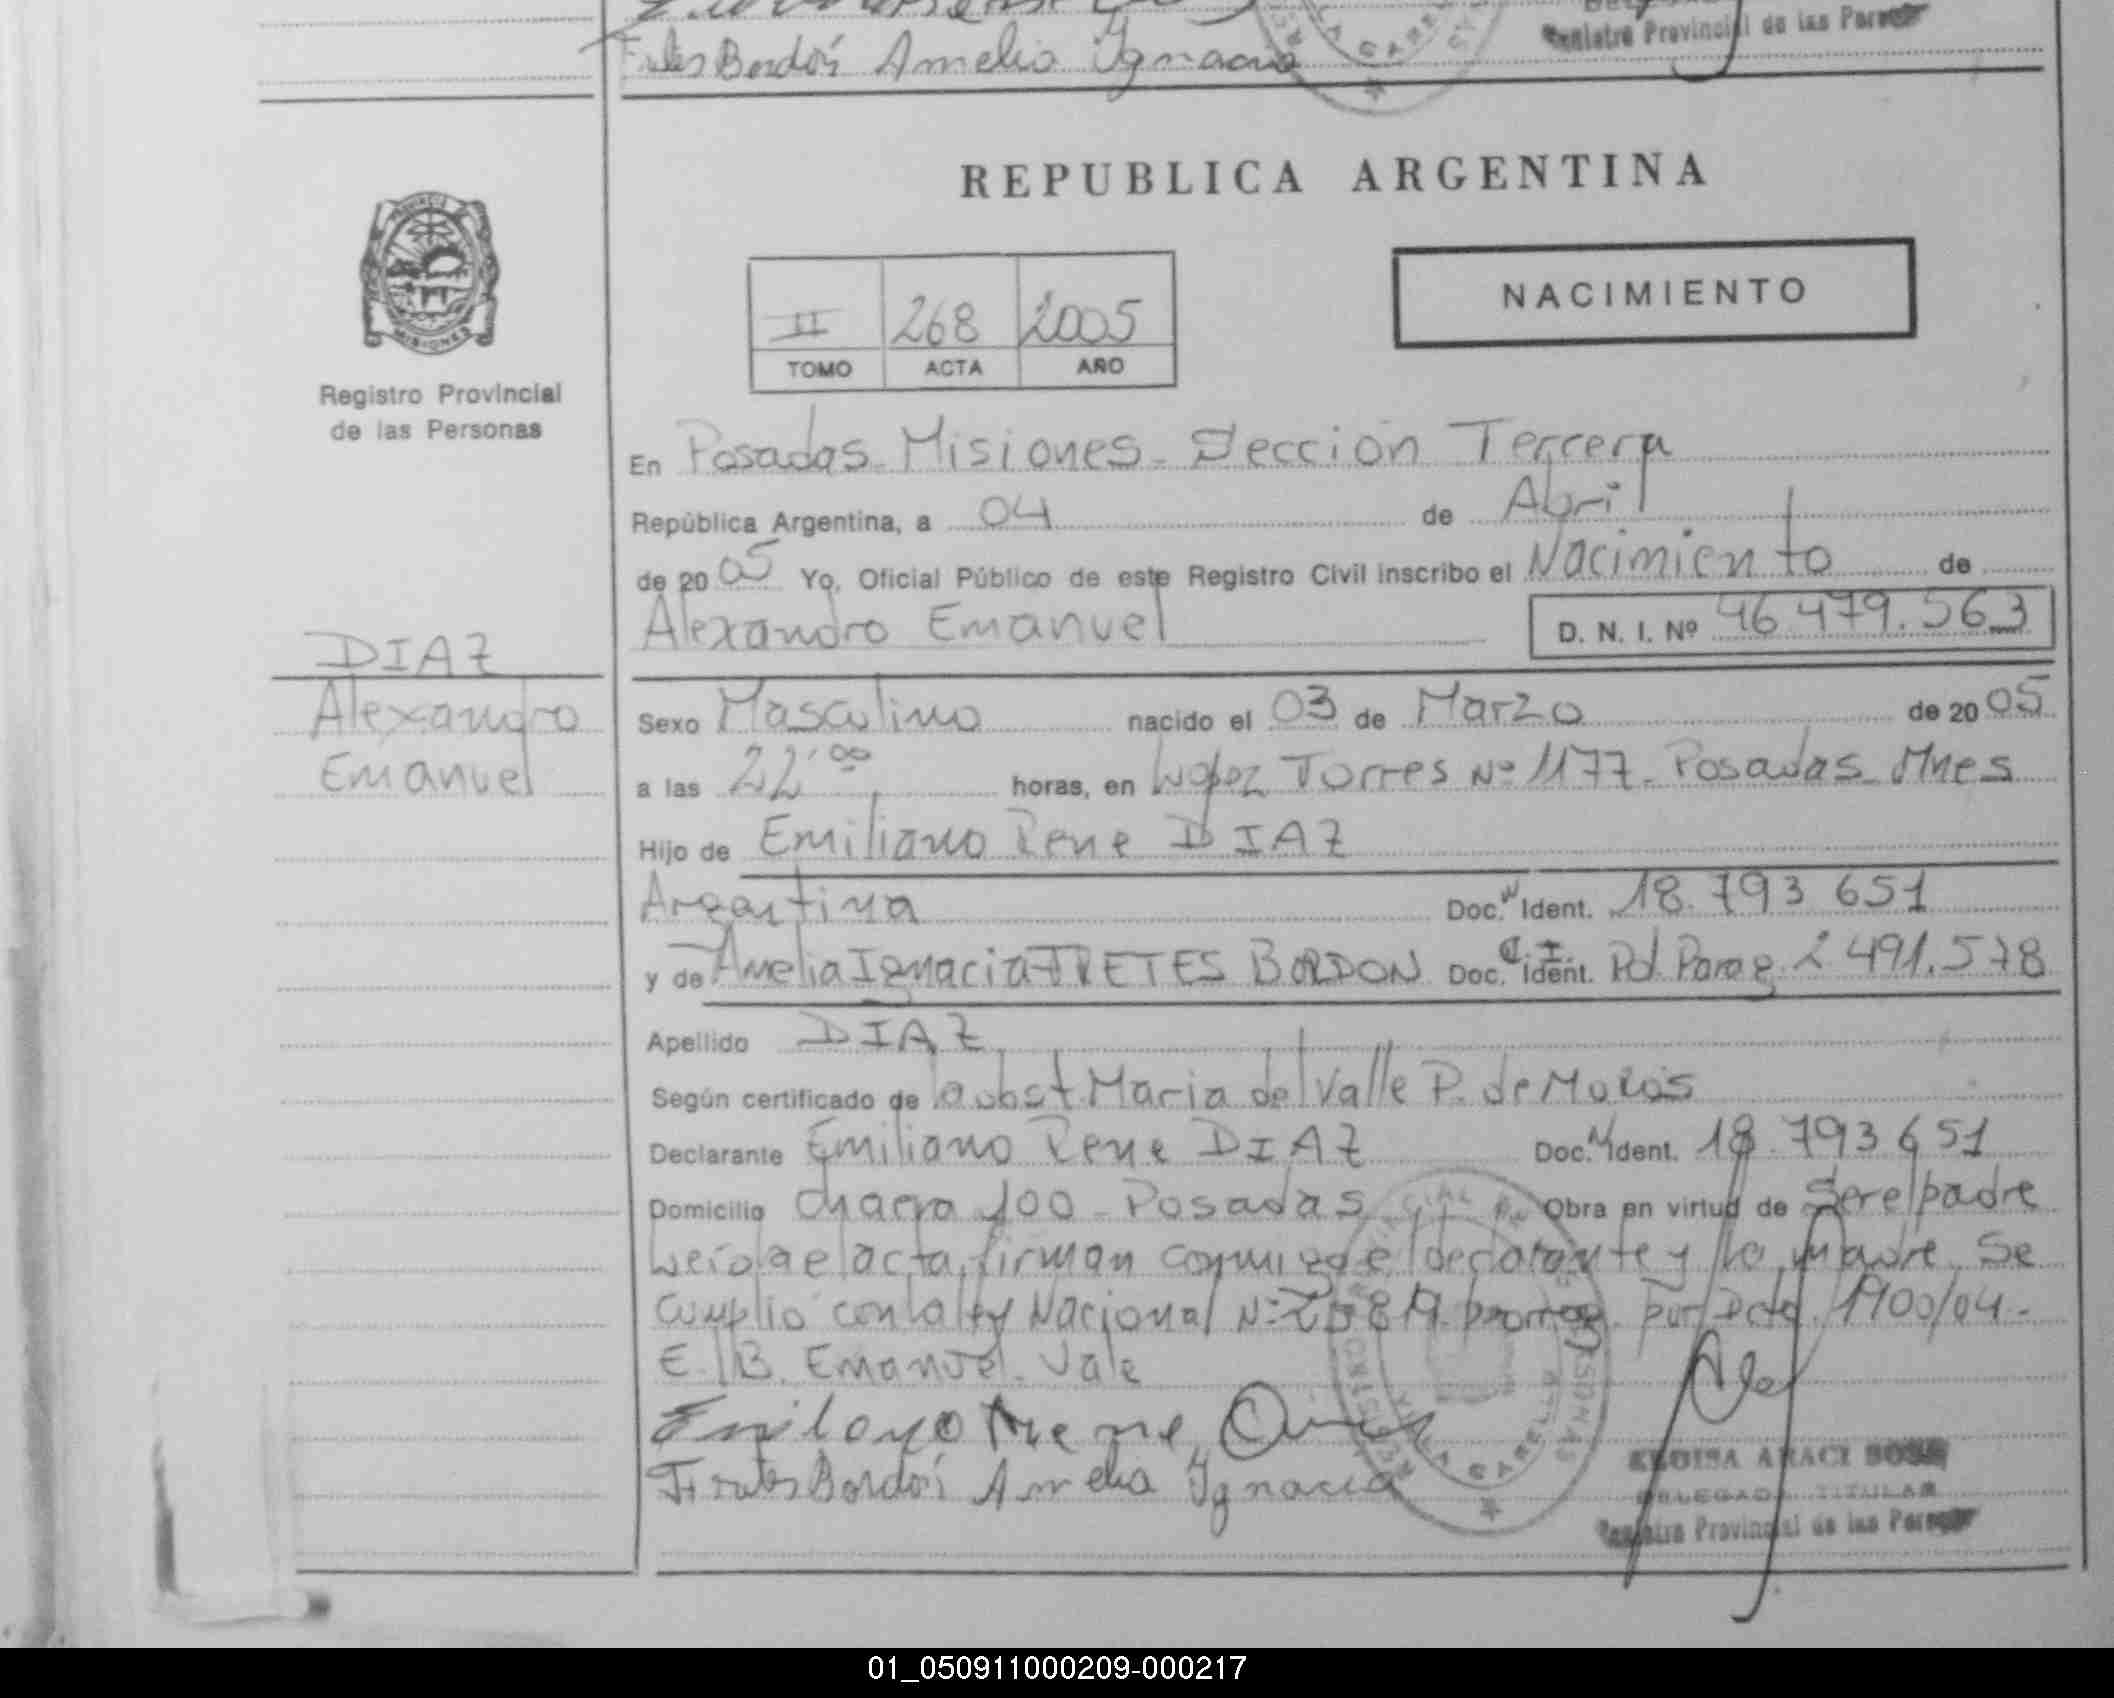 Amelia Ignacia
Registro Provincial de las Personas
REPUBLICA ARGENTINA
PROVINCIA DE MISIONES
Registro Provincial
de las Personas
II 268 2005
TOMO ACTA AÑO
NACIMIENTO
En Posadas - Misiones - Sección Tercera
República Argentina, a 04 de Abril
de 2005 Yo, Oficial Público de este Registro Civil inscribo el Nacimiento de
Alexandro Emanuel D. N. I. Nº 46.479.563
DIAZ
Alexandro
Emanuel
Sexo Masculino nacido el 03 de Marzo de 2005
a las 22,00 horas, en Lopez Torres Nº 1177 - Posadas - Mnes
Hijo de Emiliano Rene DIAZ
Argentina Doc. Ident. 18.793 651
y de Amelia Ignacia FRETES BORDON Doc. C.I. Ident. Pol Parag. 2 491.578
Apellido DIAZ
Según certificado de la obst Maria del Valle P. de
Declarante Emiliano Rene DIAZ Doc. Ident. 18.793 651
Domicilio Chacra 100 - Posadas Obra en virtud de Ser el padre
Leida el acta, firman conmigo el declarante y la madre. Se
cumplio con la ley Nacional Nº 25819 prorrog. por Dcto. 1900/04.-
E/B. Emanuel. Vale
Emiliano Rene
Fretes Bordón Amelia Ignacia
ELOISA ARACI SOSA
DELEGADA TITULAR
Registro Provincial de las Personas
VILLA CABELLO
01_050911000209-000217